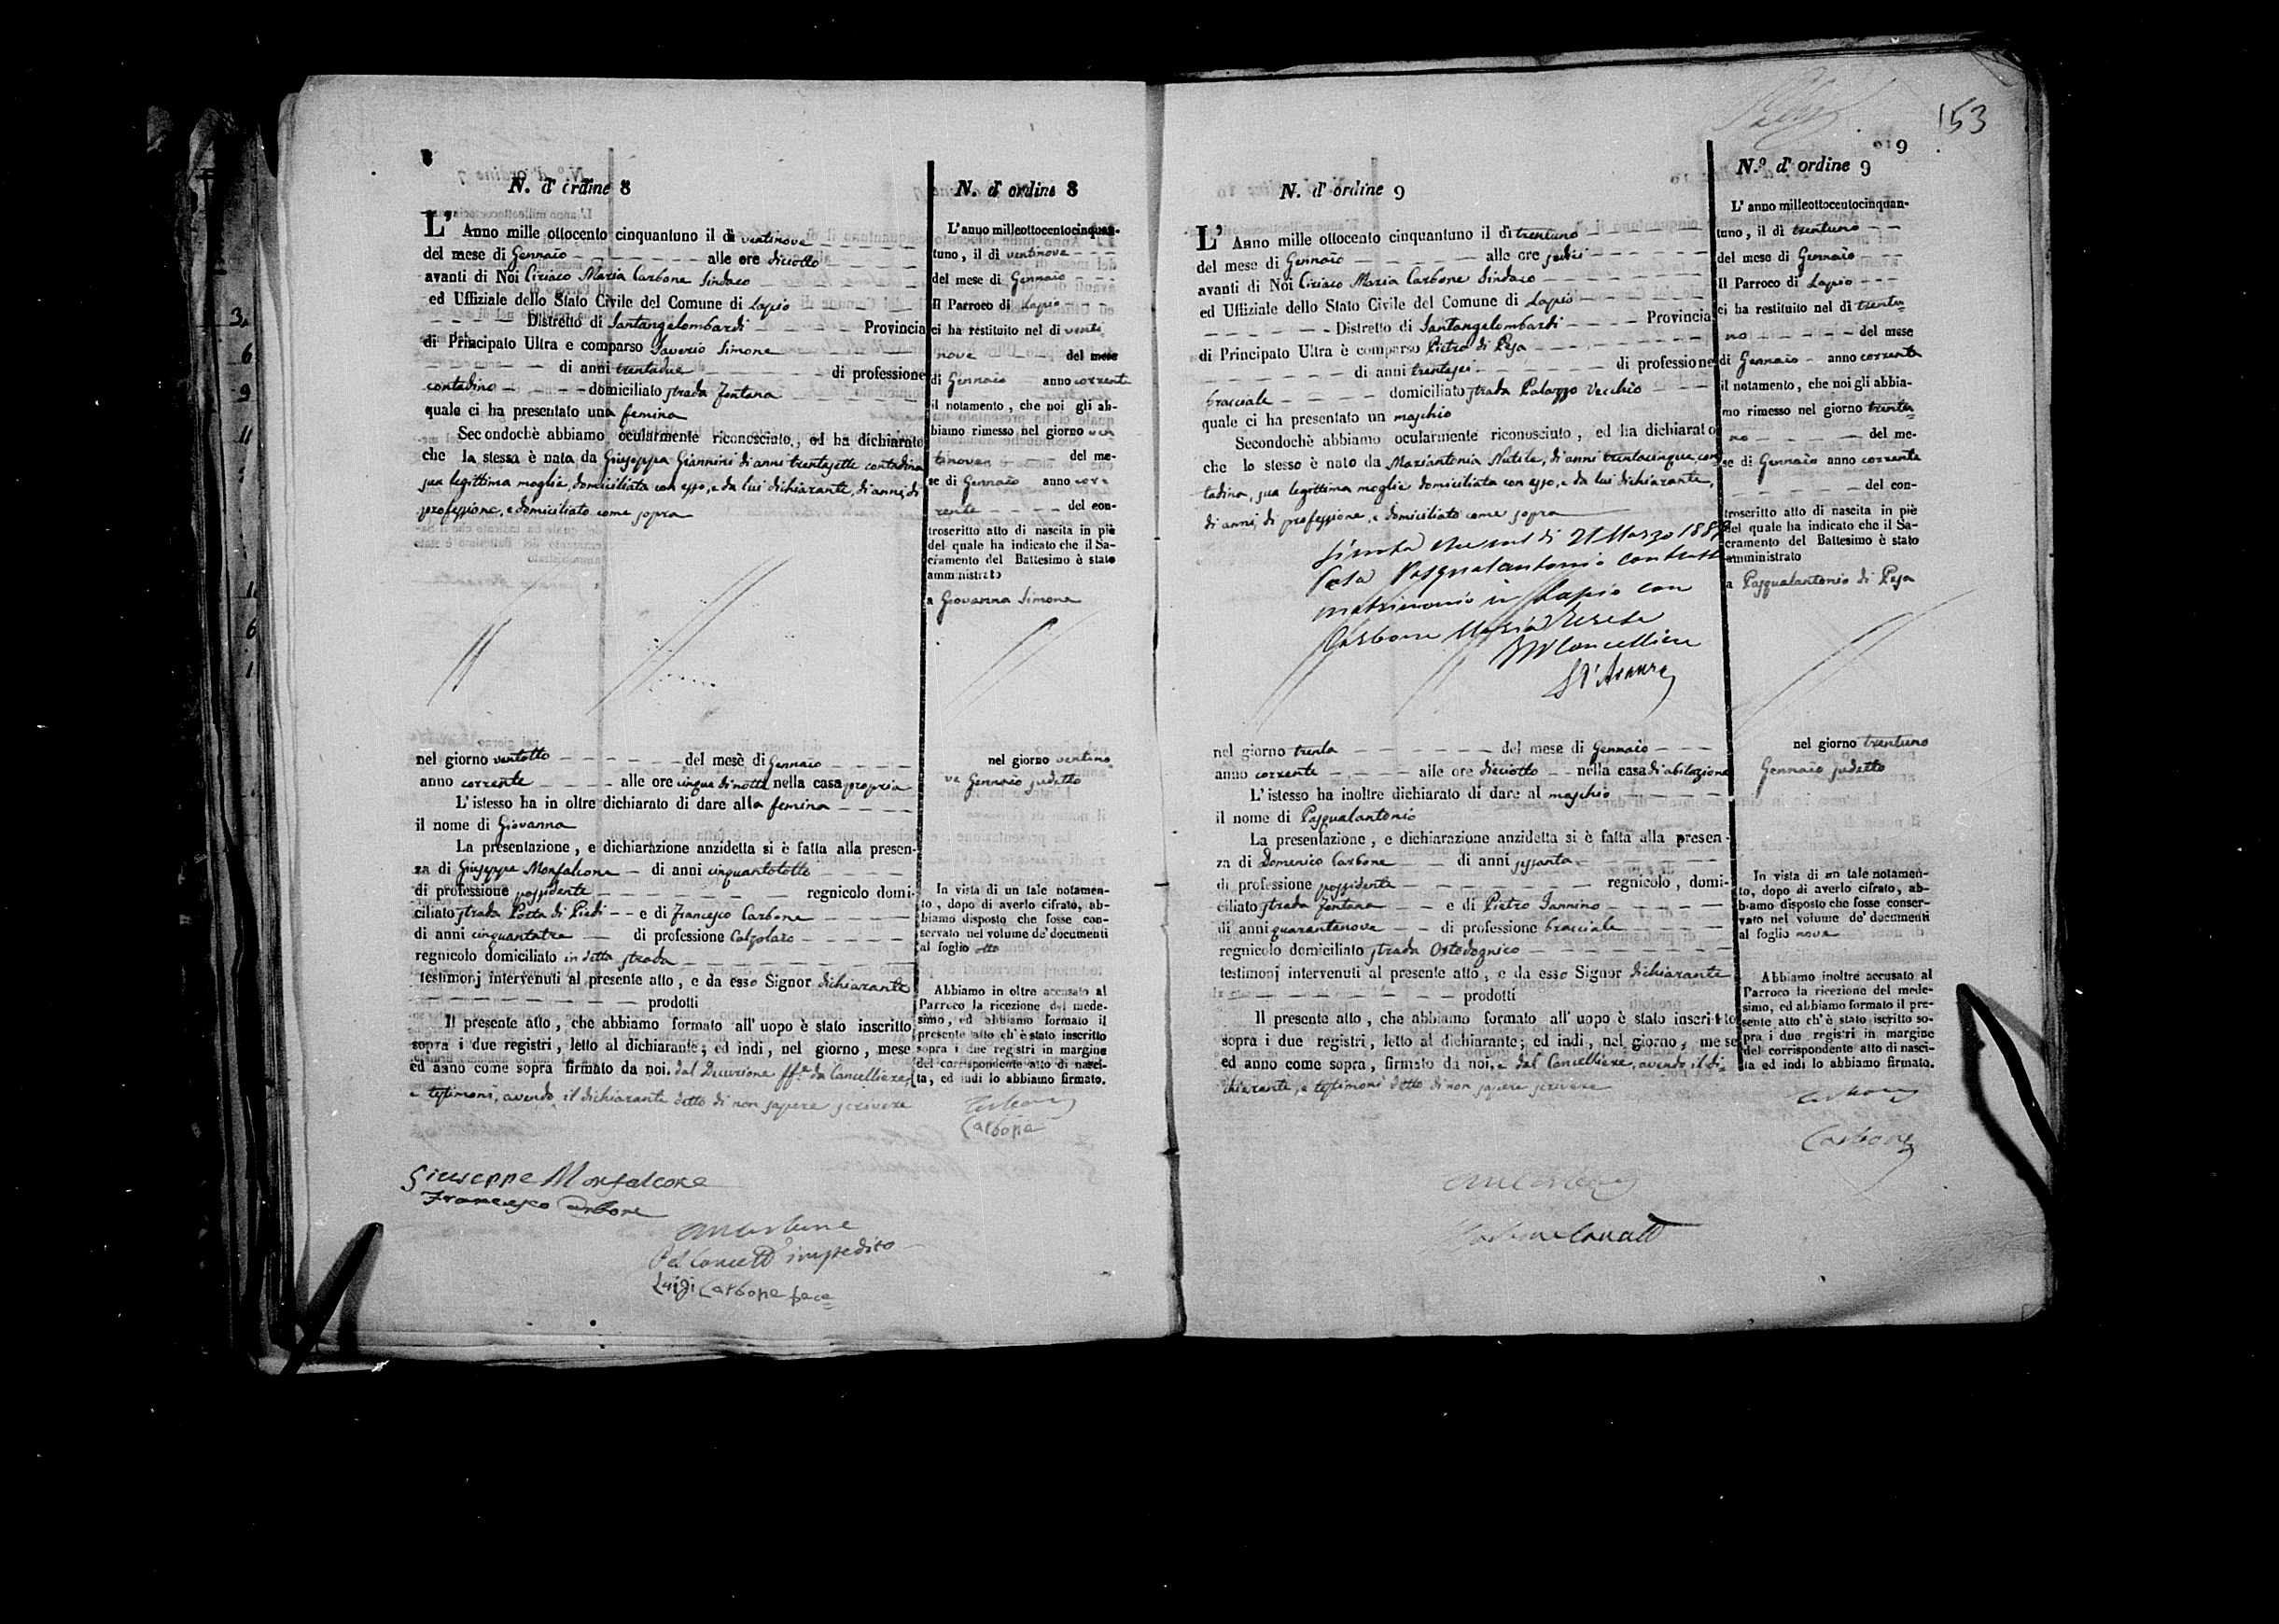 153
8
N. d' ordine 8
L' Anno mille ottocento cinquantuno il dì ventinove
del mese di Gennaio alle ore diciotto
avanti di Noi Ciriaco Maria Carbone Sindaco
ed Uffiziale dello Stato Civile del Comune di Lapio
Distretto di Santangelombardi Provincia
di Principato Ultra e comparso Saverio Simone
di anni trentadue di professione
contadino domiciliato strada Fontana
quale ci ha presentato una femina
Secondochè abbiamo ocularmente riconosciuto, ed ha dichiarato
che la stessa è nata da Giuseppa Giannini di anni trentasette contadina
sua legittima moglie, domiciliata con esso, e da lui dichiarante, di anni, di
professione, e domiciliato come sopra
nel giorno ventotto del mese di Gennaio
anno corrente alle ore cinque di notte nella casa propria
L' istesso ha in oltre dichiarato di dare alla femina
il nome di Giovanna
La presentazione, e dichiarazione anzidetta si è fatta alla presen-
za di Giuseppe Monfalcone di anni cinquantotto
di professione possidente regnicolo domi-
ciliato strada Porta di Piedi e di Francesco Carbone
di anni cinquantatre di professione Calzolaio
regnicolo domiciliato in detta strada
testimonj intervenuti al presente atto, e da esso Signor dichiarante
prodotti
Il presente atto, che abbiamo formato all' uopo è stato inscritto
sopra i due registri, letto al dichiarante; ed indi, nel giorno, mese
ed anno come sopra firmato da noi, dal Decurione ff. da Cancelliere,
e testimoni, avendo il dichiarante detto di non sapere scrivere
Giuseppe Monfalcone
Francesco Carbone
Pel Cancell. impedito
Luigi Carbone
N. d' ordine 8
L' anno milleottocentocinquan-
tuno, il dì ventinove
del mese di Gennaio
Il Parroco di Lapio
ci ha restituito nel dì venti
nove del mese
di Gennaio anno corrente
il notamento, che noi gli ab-
biamo rimesso nel giorno ven
tinove del me-
se di Gennaio anno cor-
rente del con-
troscritto atto di nascita in piè
del quale ha indicato che il Sa-
cramento del Battesimo è stato
amministrato
a Giovanna Simone
nel giorno ventino
ve Gennaio sudetto
In vista di un tale notamen-
to, dopo di averlo cifrato, ab-
biamo disposto che fosse con-
servato nel volume de' documenti
al foglio otto
Abbiamo in oltre accusato al
Parroco la ricezione del mede-
simo, ed abbiamo formato il
presente atto ch' è stato inscritto
sopra i due registri in margine
del corrispondente atto di nasci-
ta, ed indi lo abbiamo firmato.
Carbone
9
N. d' ordine 9
L' Anno mille ottocento cinquantuno il dì trentuno
del mese di Gennaio alle ore sedici
avanti di Noi Ciriaco Maria Carbone Sindaco
ed Uffiziale dello Stato Civile del Comune di Lapio
Distretto di Santangelombardi Provincia
di Principato Ultra è comparso Pietro di Pesa
di anni trentasei di professione
bracciale domiciliato strada Palazzo Vecchio
quale ci ha presentato un maschio
Secondochè abbiamo ocularmente riconosciuto, ed ha dichiarato
che lo stesso è nato da Mariantonia Nutile, di anni trentacinque, con
tadina, sua legittima moglie domiciliata con esso, e da lui dichiarante,
di anni, di professione, e domiciliato come sopra
di 21 Marzo
Pesa Pasqualantonio
matrimonio in Lapio con
Carbone Maria Teresa
Cancelliere
nel giorno trenta del mese di Gennaio
anno corrente alle ore dieciotto nella casa di abitazione
L' istesso ha inoltre dichiarato di dare al maschio
il nome di Pasqualantonio
La presentazione, e dichiarazione anzidetta si è fatta alla presen-
za di Domenico Carbone di anni sessanta
di professione possidente regnicolo, domi-
ciliato strada Fontana e di Pietro Iannino
di anni quarantanove di professione bracciale
regnicolo domiciliato strada Ortodognico
testimonj intervenuti al presente atto, e da esso Signor dichiarante
prodotti
Il presente atto, che abbiamo formato all' uopo è stato inscritto
sopra i due registri, letto al dichiarante; ed indi, nel giorno, mese
ed anno come sopra, firmato da noi, e dal Cancelliere, avendo il di-
chiarante, e testimoni detto di non sapere scrivere
N.º d' ordine 9
L' anno milleottocentocinquan-
tuno, il dì trentuno
del mese di Gennaio
Il Parroco di Lapio
ci ha restituito nel dì trentu-
no del mese
di Gennaio anno corrente
il notamento, che noi gli abbia-
mo rimesso nel giorno trentu-
no del me-
se di Gennaio anno corrente
del con-
troscritto atto di nascita in piè
del quale ha indicato che il Sa-
cramento del Battesimo è stato
amministrato
a Pasqualantonio di Pesa
nel giorno trentuno
Gennaio sudetto
In vista di un tale notamen-
to, dopo di averlo cifrato, ab-
biamo disposto che fosse conser-
vato nel volume de' documenti
al foglio nove
Abbiamo inoltre accusato al
Parroco la ricezione del mede-
simo, ed abbiamo formato il pre-
sente atto ch' è stato iscritto so-
pra i due registri in margine
del corrispondente atto di nasci-
ta ed indi lo abbiamo firmato.
Carbone